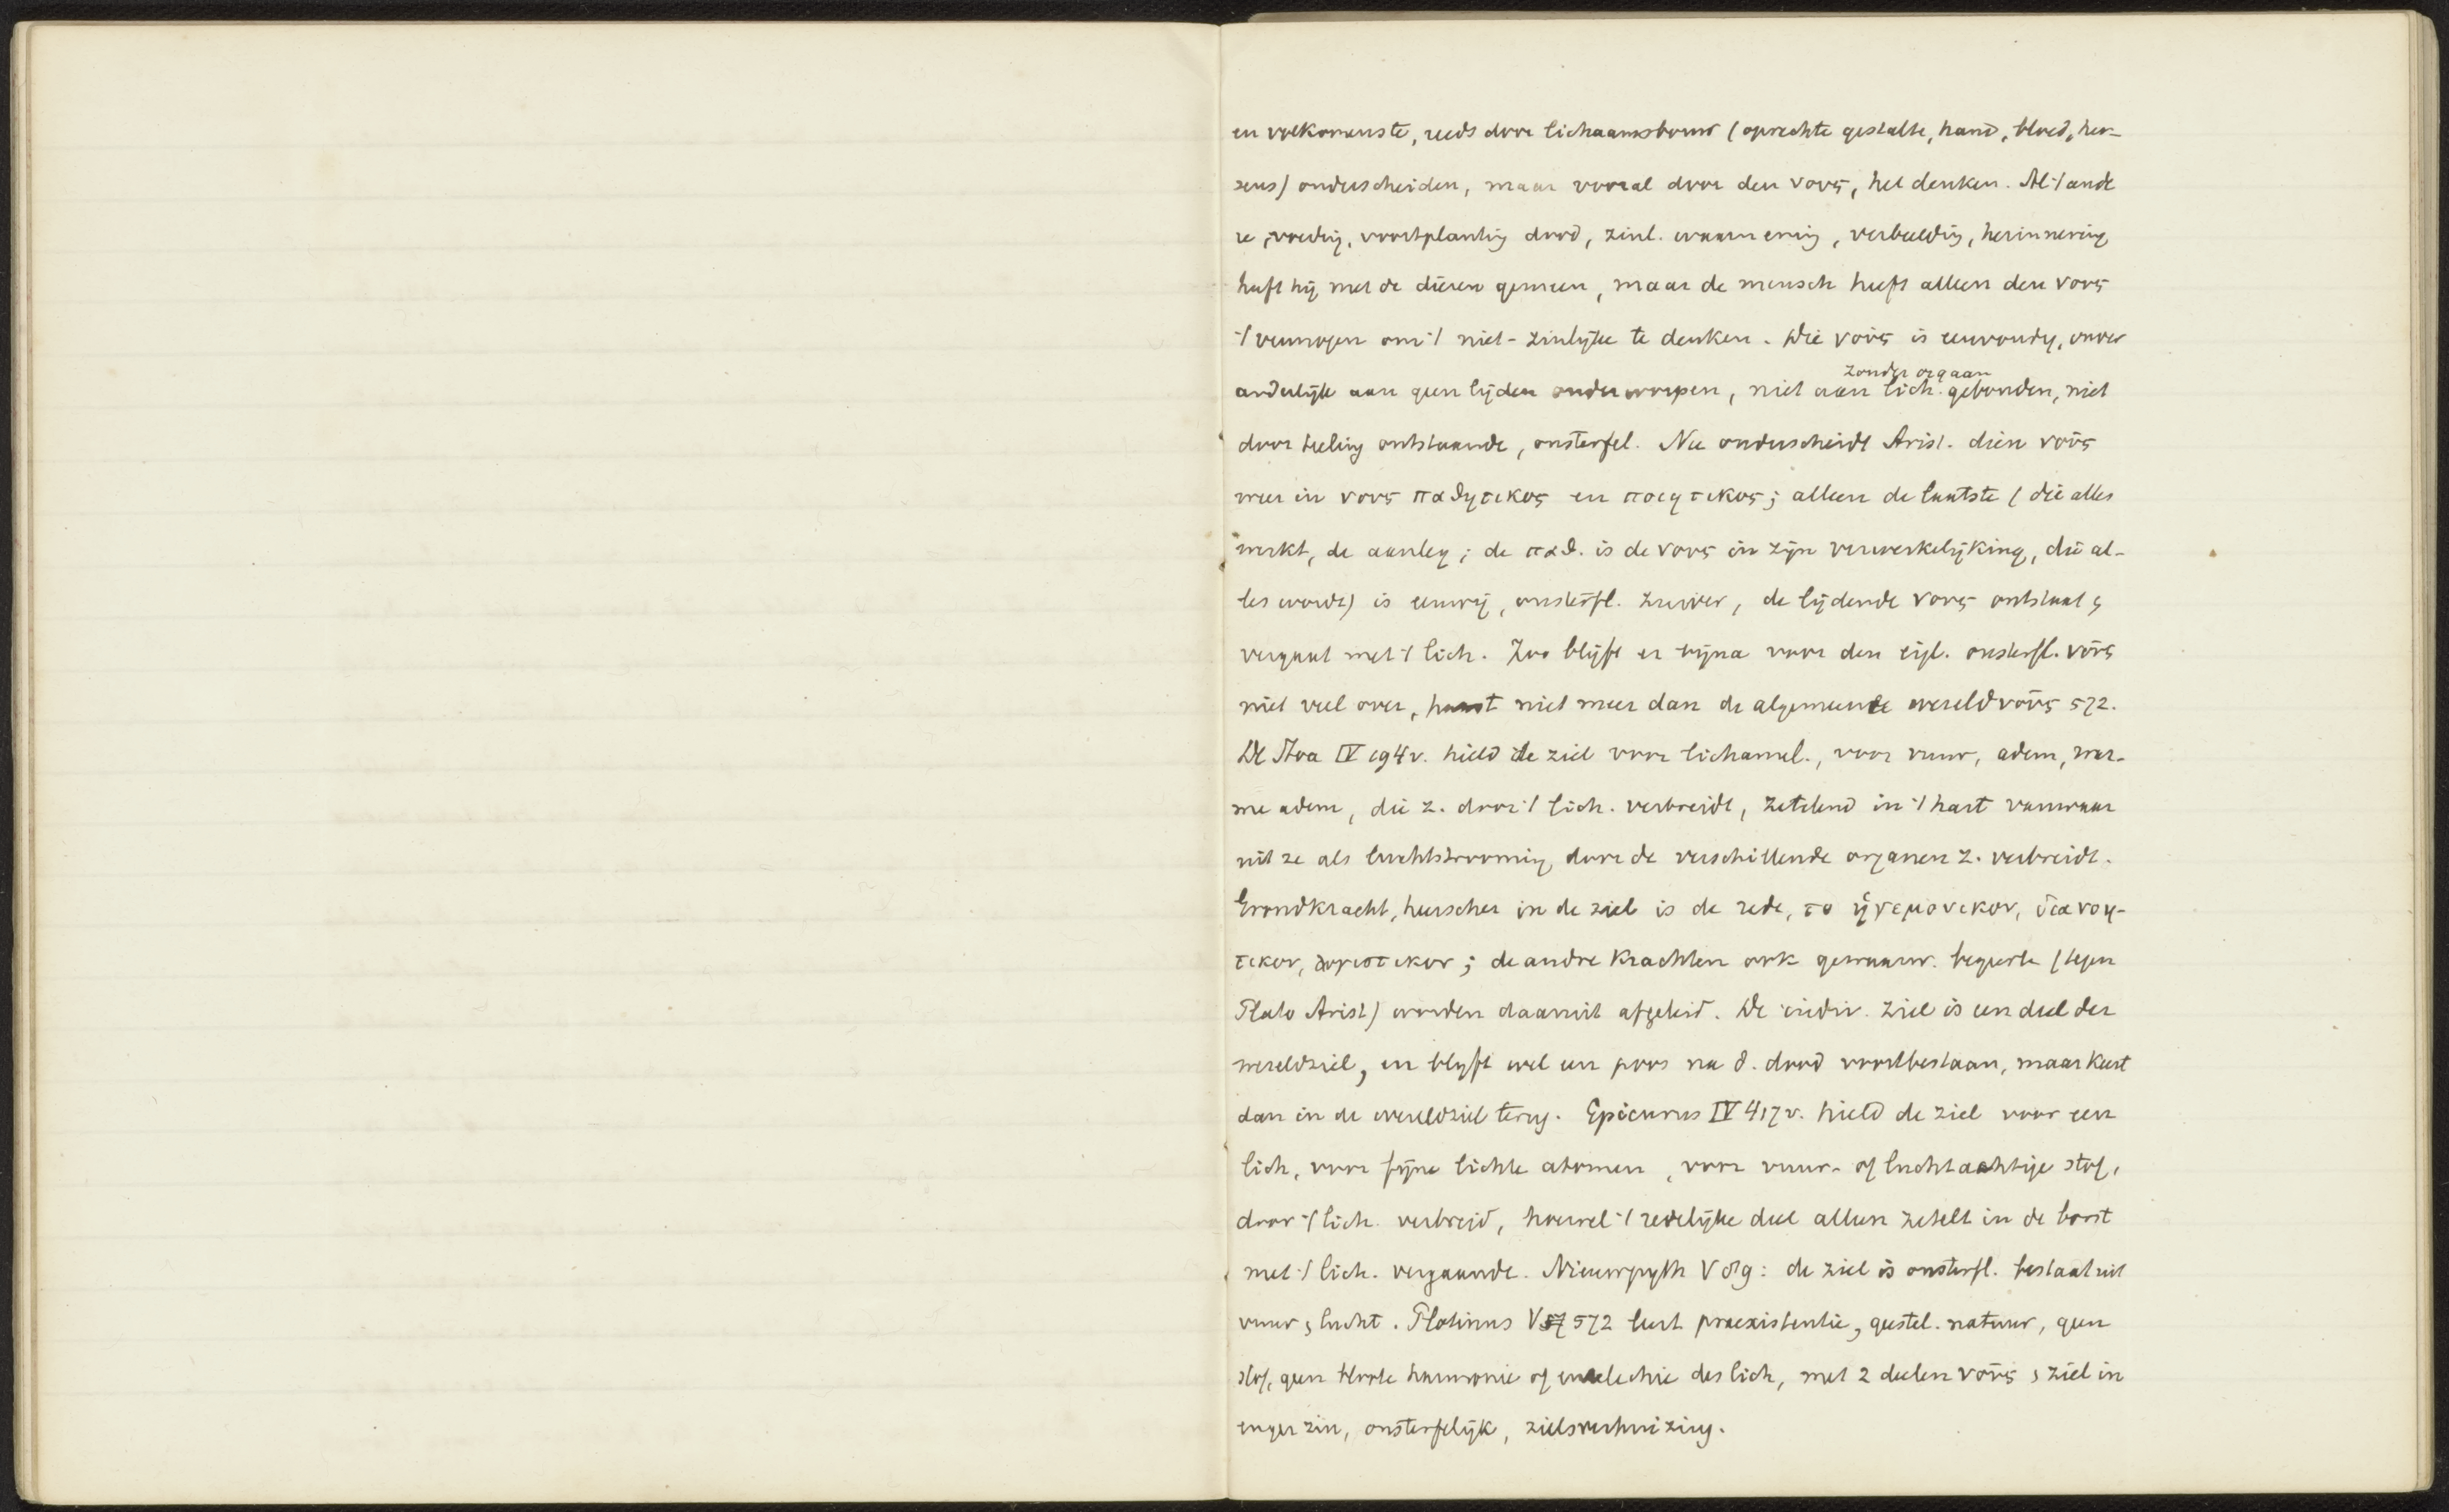 en volkomenste, reeds door lichaamsbouw (oprechte gestalte, hand, bloed, her-
sens) onderscheiden, maar vooral door den νους, het denken. Al 't ande
re, voeding, voortplanting dood, zinl. waarneming, verbeelding, herinnering
heeft hij met de dieren gemeen, maar de mensch heeft alleen den νους
't vermogen om 't niet-zinlijke te denken. Die νοῦς is eenvoudig, onver
zonder orgaan
anderlijk aan geen lijden onderworpen, niet aan lich. gebonden, niet
door teeling ontstaande, onsterfel. Nu onderscheidt Arist. dien νοῦς
weer in νους παθητικος en ποιητικος; alleen de laatste (die alles
werkt, de aanleg; de παθ. is de νους in zijn verwerkelijking, die al-
les wordt) is eeuwig, onsterfl. zuiver, de lijdende νους ontstaat &
vergaat met 't lich. Zoo blijft er bijna voor den eigl. onsterfl. νοῦς
niet veel over, haast niet meer dan de algemeene wereldνοῦς 572.
De Stoa IV 194v. hield de ziel voor lichamel., voor vuur, adem, war-
me adem, die z. door 't lich. verbreidt, zetelend in 't hart vanwaar
uit ze als luchtstrooming door de verschillende organen z. verbreidt.
Grondkracht, heerscher in de ziel is de rede, το ἡγεμονικον, διανοη-
τικον, λογιστικον; de andre krachten ook gewaarw. begeerte (tegen
Plato Arist) worden daaruit afgeleid. De indiv. ziel is een deel der
wereldziel, en blijft wel een poos na d. dood voortbestaan, maar keert
dan in de wereldziel terug. Epicurus IV 417v. hield de ziel voor een
lich, voor fijne lichte atomen, voor vuur- of luchtachtige stof,
door 't lich. verbreid, hoewel 't redelijke deel alleen zetelt in de borst
met 't lich. vergaande. Nieuwpyth V : de ziel is onsterfl. bestaat uit
vuur & lucht. Plotinus V 572 leert praeexistentie, geestel. natuur, geen
stof, geen bloote harmonie of entelechie des lich, met 2 deelen νοῦς & ziel in
enger zin, onsterfelijk, zielsverhuizing.